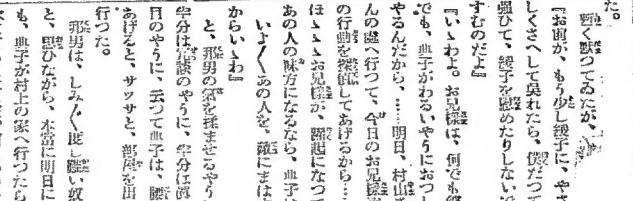 た。
暫く黙つてゐたが、
『お前が、もう少し綾子に、やさ
しくさへして呉れたら、僕だつて
強ひて、綾子を慰めたりしないで
すむのだよ』
『いゝわよ。お兄様は、何でも綾
でも、典子がわるいやうにおつし
やるんだから、……明日、村山さ
んの処へ行つて、今日のお兄様
の行動を探偵してあげるから…
ほゝゝお兄様が、躍起になつて
あの人の味方になるなら、典子は
いよ〳〵あの人を、敵にまは
からいゝわ』
と、邦男の気を揉ませるやう
半分は冗談のやうに、半分は真
目のやうに、云つて典子は、腰
あげると、サツサと、部屋を出
行つた。
邦男は、しみ〴〵度し難い奴
と、思ひながら、本当に明日に
も、典子が村上の家へ行つたら